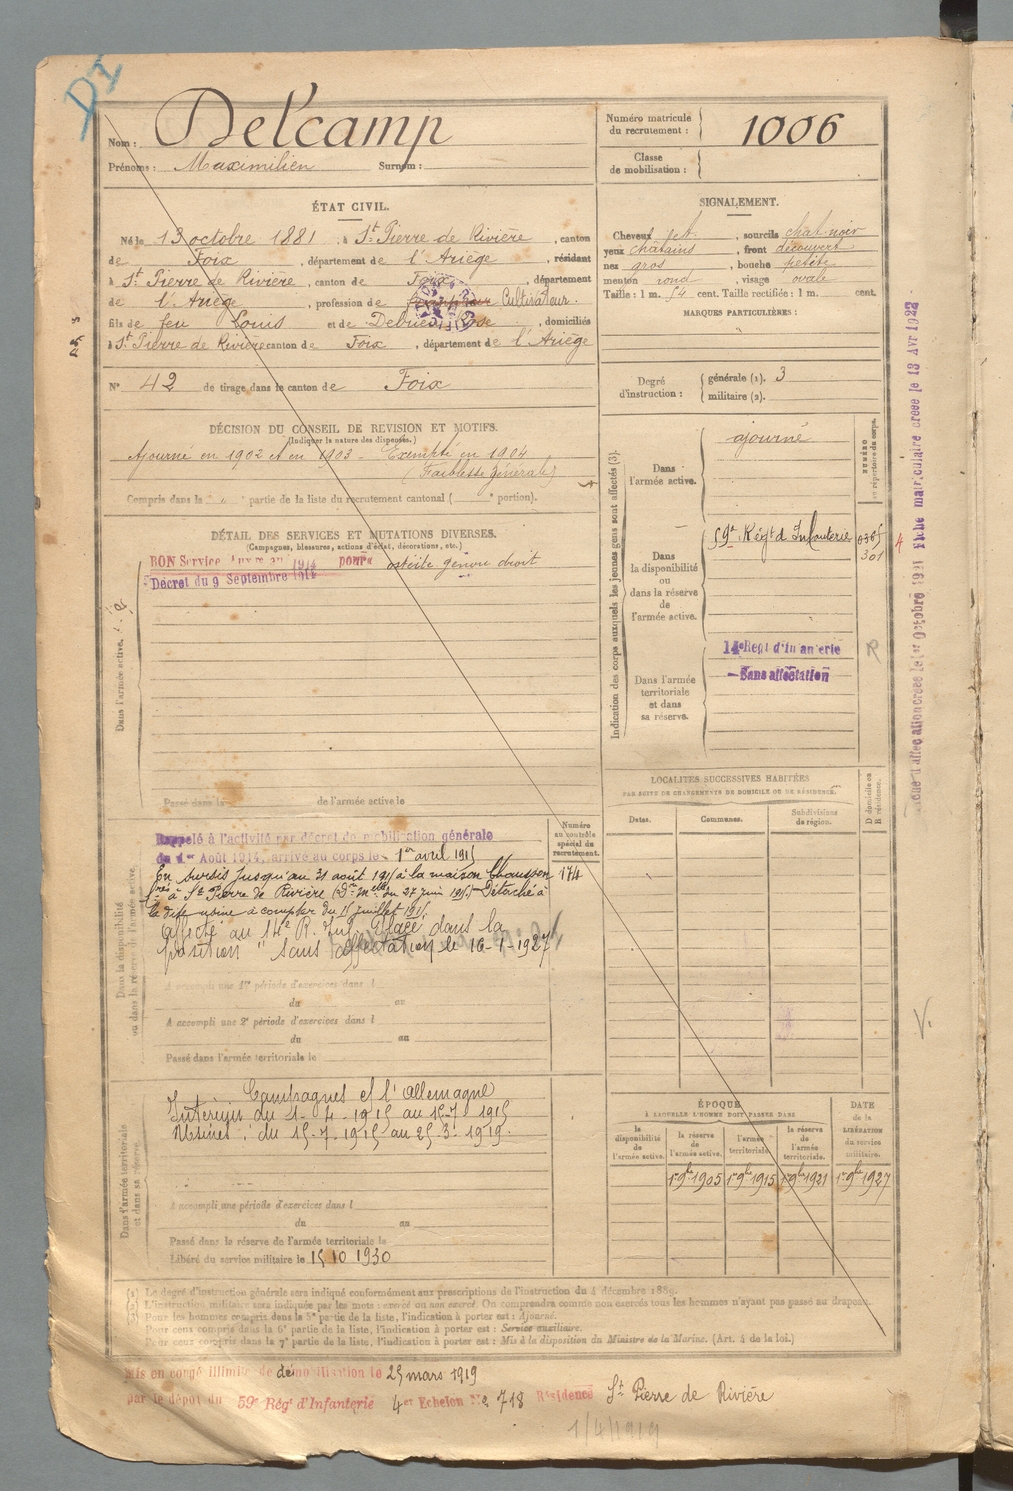 DI
Nom : Delcamp
Prénoms : Maximilien Surnom :
Numéro matricule du recrutement : 1006
Classe de mobilisation :
ÉTAT CIVIL.
Né le 13 octobre 1881, à St Pierre de Rivière, canton
de Foix, département de l'Ariège, résidant
à St Pierre de Rivière, canton de Foix, département
de l'Ariège, profession de Cultivateur.
fils de feu Louis et de Rose, domiciliés
à St Pierre de Rivière canton de Foix, département de l'Ariège
N° 42 de tirage dans le canton de Foix
SIGNALEMENT.
Cheveux et sourcils chat-noir
yeux châtains, front découvert
nez gros, bouche petite
menton rond, visage ovale
Taille : 1 m. 54 cent. Taille rectifiée : 1 m. cent.
MARQUES PARTICULIÈRES :
Degré d'instruction : générale (1). 3
militaire (2).
DÉCISION DU CONSEIL DE REVISION ET MOTIFS.
(Indiquer la nature des dispenses.)
Ajourné en 1902 et en 1903 - Exempté en 1904
(Faiblesse générale)
Compris dans la partie de la liste du recrutement cantonal ( portion).
DÉTAIL DES SERVICES ET MUTATIONS DIVERSES.
(Campagnes, blessures, actions d'éclat, décorations, etc.)
BON Service pour ostéite genou droit
Décret du 9 Septembre 1914
Dans l'armée active.
Passé dans la de l'armée active le
Indication des corps auxquels les jeunes gens sont affectés (3).
Dans l'armée active.
ajourné
NUMÉRO au répertoire du corps.
Dans la disponibilité ou dans la réserve de l'armée active.
59e Régt d'Infanterie
301
4
Dans l'armée territoriale et dans sa réserve.
14e Régt d'Infanterie
Sans affectation
R
Fiche matriculaire créée le 13 Avr 1922
LOCALITÉS SUCCESSIVES HABITÉES
PAR SUITE DE CHANGEMENTS DE DOMICILE OU DE RÉSIDENCE.
Dates. Communes. Subdivisions de région. D domicile ou R résidence.
Numéro au contrôle spécial du recrutement.
174
Dans la disponibilité ou dans la réserve de l'armée active.
Rappelé à l'activité par décret de mobilisation générale
du 1er Août 1914, arrivé au corps le 1er avril 1915
En sursis jusqu'au 31 août 1915 à la maison Chausson
frères à St Pierre de Rivière (Don Melle du 27 juin 1915) Détaché à
la dite usine à compter du 15 juillet 1915.
affecté au 14e R. Inf. Placé dans la
position "sans affectation le 16-1-1927
A accompli une 1re période d'exercices dans l
du au
A accompli une 2e période d'exercices dans l
du au
Passé dans l'armée territoriale le
Dans l'armée territoriale et dans sa réserve.
Campagnes et l'Allemagne
Intérieur du 1-4-1915 au 15-7-1915
Usines : du 15-7-1915 au 25-3-1919.
A accompli une période d'exercices dans l
du au
Passé dans la réserve de l'armée territoriale le
Libéré du service militaire le 15 10 1930
ÉPOQUE
À LAQUELLE L'HOMME DOIT PASSER DANS
la disponibilité de l'armée active. la réserve de l'armée active. l'armée territoriale. la réserve de l'armée territoriale.
DATE de la LIBÉRATION du service militaire.
1er 9bre 1905 1er 9bre 1915 1er 9bre 1921 1er 9bre 1927
V.
(1) Le degré d'instruction générale sera indiqué conformément aux prescriptions de l'instruction du 4 décembre 1889.
(2) L'instruction militaire sera indiquée par les mots : exercé ou non exercé. On comprendra comme non exercés tous les hommes n'ayant pas passé au drapeau.
(3) Pour les hommes compris dans la 5e partie de la liste, l'indication à porter est : Ajourné.
Pour ceux compris dans la 6e partie de la liste, l'indication à porter est : Service auxiliaire.
Pour ceux compris dans la 7e partie de la liste, l'indication à porter est : Mis à la disposition du Ministre de la Marine. (Art. 4 de la loi.)
Mis en congé illimité de démobilisation le 25 mars 1919
par le dépôt du 59e Régt d'Infanterie 4er Echelon No 718 Résidence St Pierre de Rivière
1/4/1919